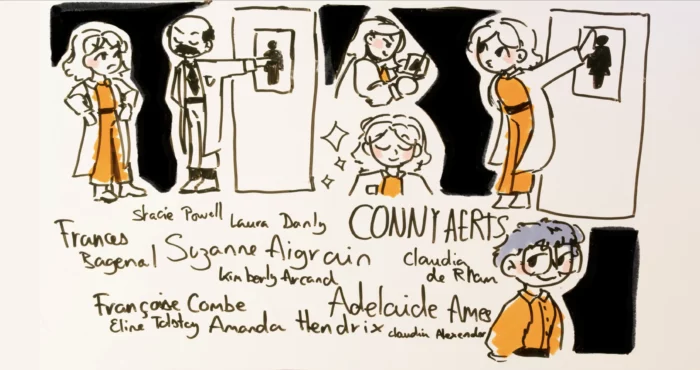 Stacie Powell Laura Danly CONNY AERTS
Frances
Bagenal Suzanne Aigrain claudia
de Rham
Kimberly Arcand
Françoise Combe Adelaide Ames
Eline Tolstoy Amanda Hendrix claudia Alexander